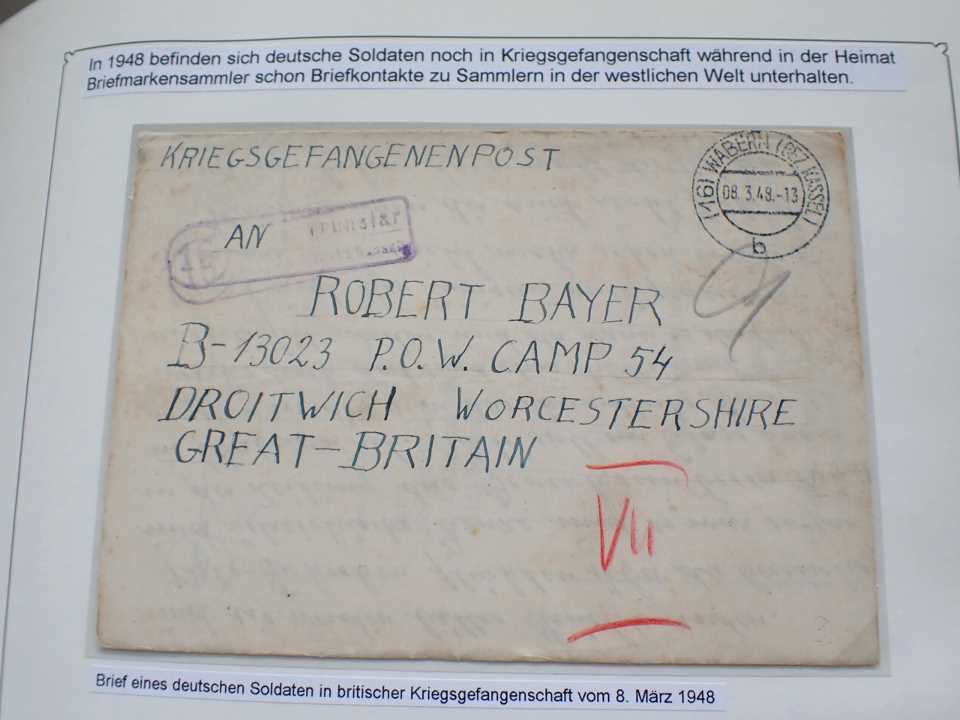 In 1948 befinden sich deutsche Soldaten noch in Kriegsgefangenschaft während in der Heimat
Briefmarkensammler schon Briefkontakte zu Sammlern in der westlichen Welt unterhalten.
KRIEGSGEFANGENENPOST
(16) WABERN (BEZ KASSEL)
08.3.48.-13
b
AN
ROBERT BAYER
B-13023 P.O.W. CAMP 54
DROITWICH WORCESTERSHIRE
GREAT-BRITAIN
VII
Brief eines deutschen Soldaten in britischer Kriegsgefangenschaft vom 8. März 1948